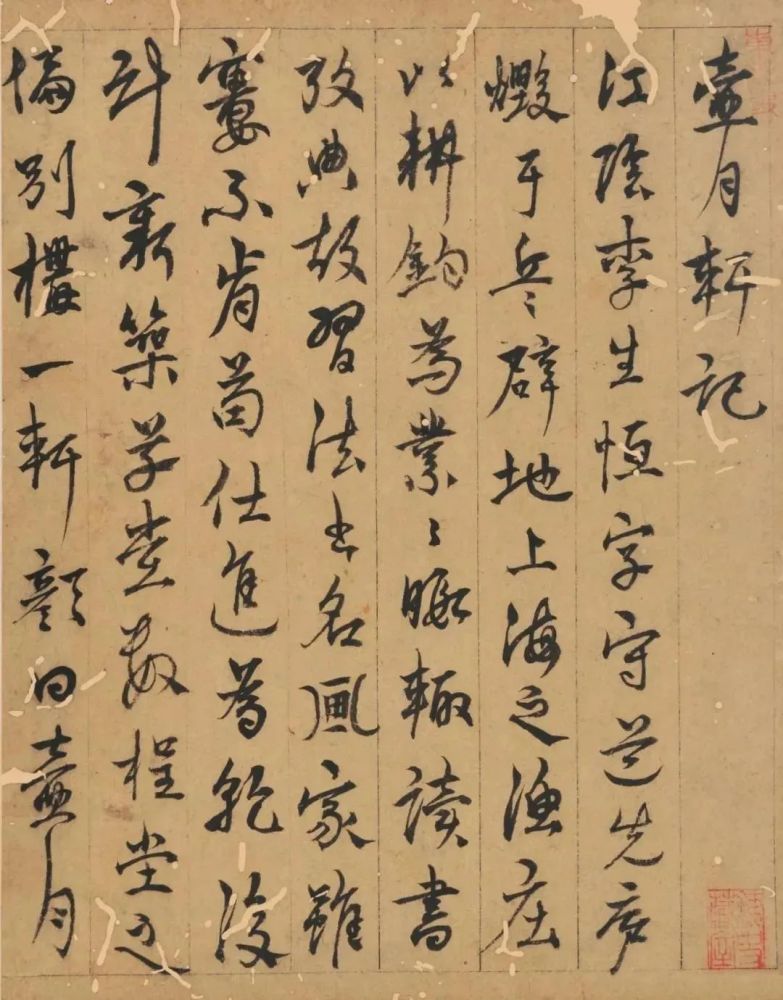 壺月軒記
江陰李生恒字守道先廬
燬于兵辟地上海之漁庄
以耕釣為業々暇輒讀書
攷典故習法書名畫家雖
窶不肯苟仕進為乾沒
計新築草堂數楹堂之
偏別構一軒顏曰壺月